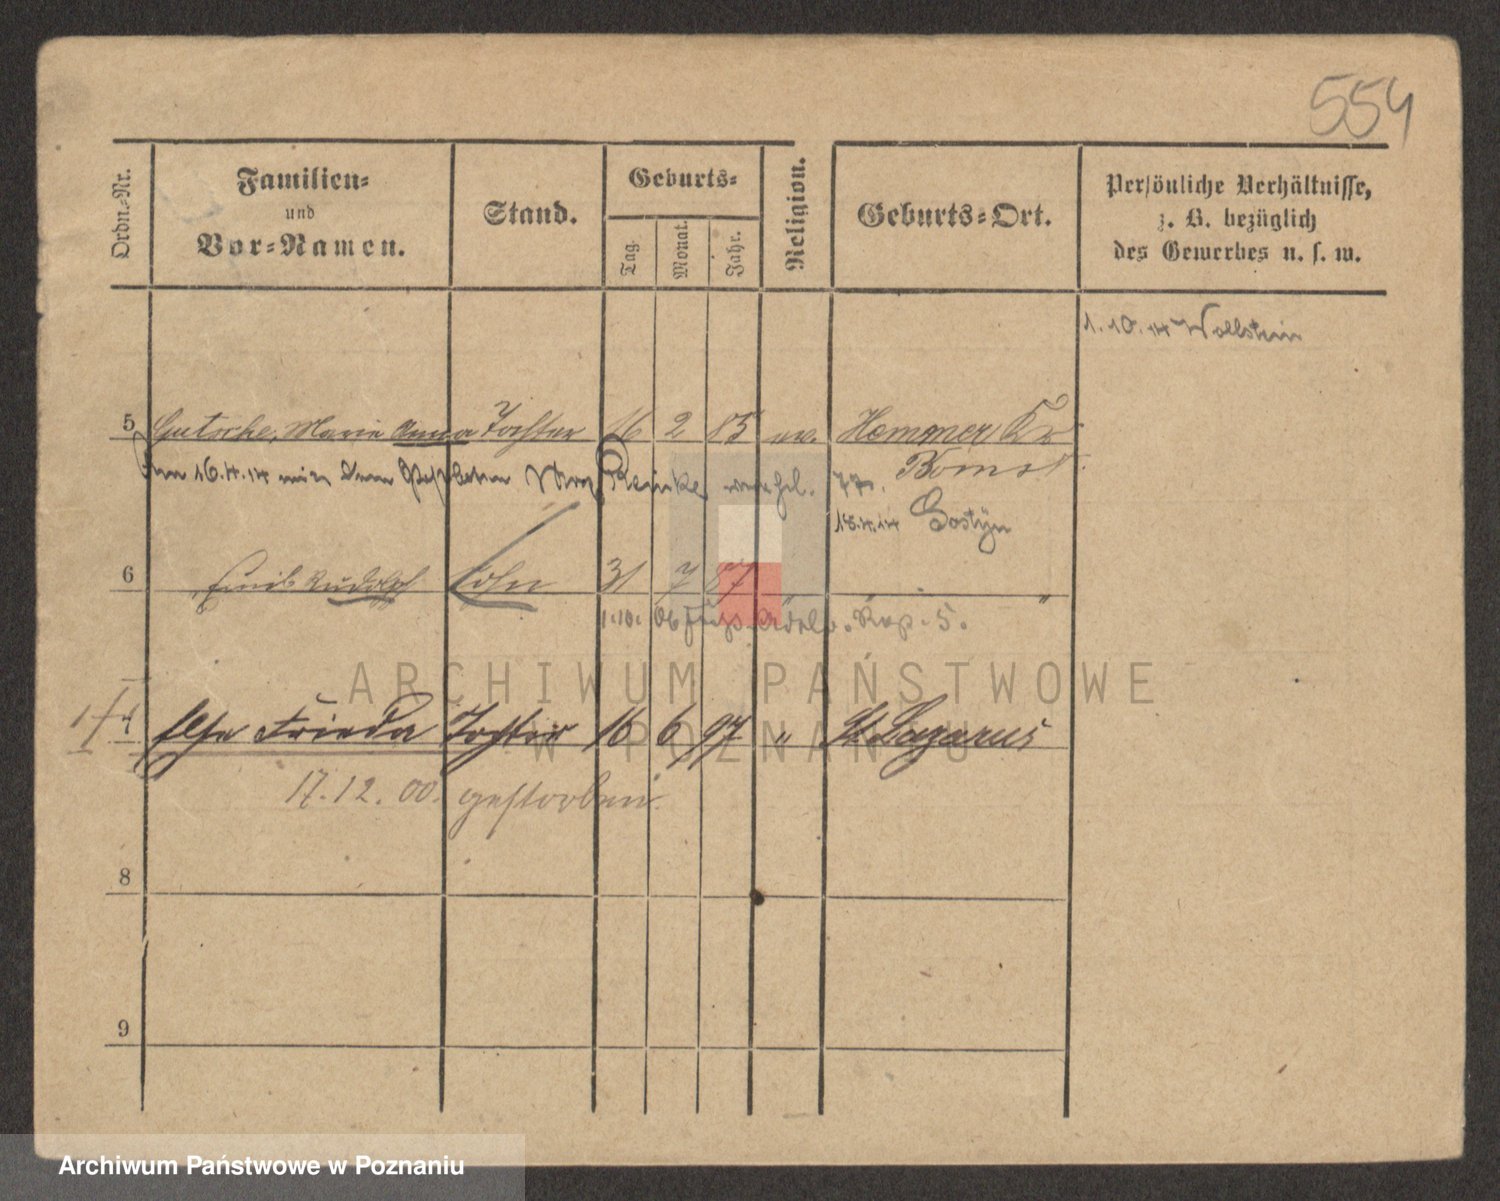 554
Ordn.-Nr.
Familien-
und
Vor-Namen.
Stand.
Geburts-
Tag.
Monat.
Jahr.
Religion.
Geburts-Ort.
Persönliche Verhältnisse,
z. B. bezüglich
des Gewerbes u. s. w.
1.10.14 Wollstein
5 Gutsche, Marie Anna Tochter 16 2 85 ev. Hammer Kr
Bomst.
Am 16.4.14 mit dem Reinke verhl.
18.4.14 Gostyn
6 Emil Rudolf Sohn 31 7 87 " "
1.10. 06 Adolb. 5.
ARCHIWUM PAŃSTWOWE
W POZNANIU
7 Else Frieda Tochter 16 6 97 " St. Lazarus
17.12.00. gestorben.
8
9
Archiwum Państwowe w Poznaniu